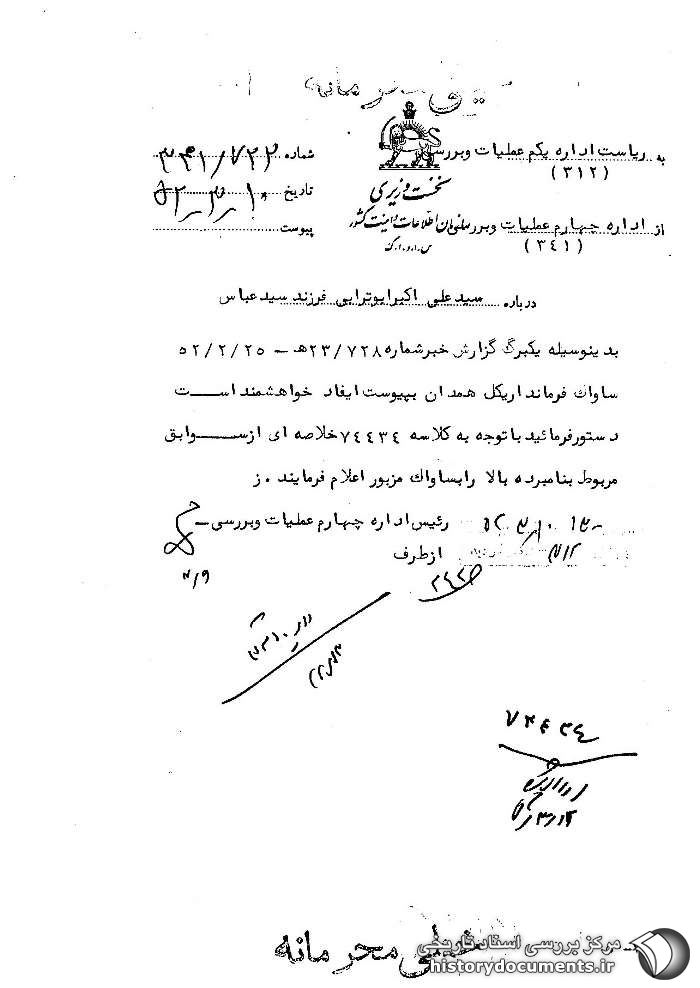 خیلی محرمانه
به ریاست اداره یکم عملیات وبررسی
(۳۱۲)
شماره ۳۴۱/۷۲۲
نخست وزیری
تاریخ ۵۲-۳-۱۰
از اداره چهارم عملیات وبررسی
سازمان اطلاعات و امنیت کشور
(۳٤۱)
س.ا.و.ا.ک
پیوست
درباره سیدعلی اکبرابوترابی فرزند سیدعباس
بدینوسیله یکبرگ گزارش خبرشماره ۲۳/۷۲۸ه‍ – ۵۲/۲/۲۵
ساواك فرمانداریکل همدان بپیوست ایفاد خواهشمند است
دستورفرمائید باتوجه به کلاسه ۷٤٤۳٤ خلاصه ای ازسوابق
مربوط بنامبرده بالا رابساواك مزبور اعلام فرمایند . ز
رئیس اداره چهارم عملیات وبررسی –
ازطرف
۷٤٤۳٤
خیلی محرمانه
مرکز بررسی اسناد تاریخی
historydocuments.ir